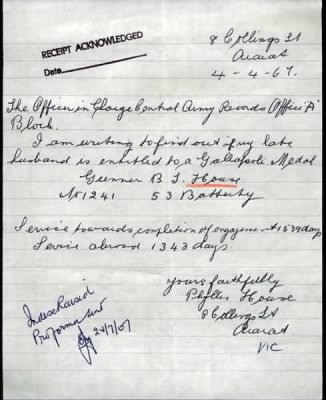 RECEIPT ACKNOWLEDGED
Date
8 Collings St
Ararat
4-4-67.
The Officer in Charge Central Army Records (Office 'A'
Block.
I am writing to find out if my late
husband is entitled to a Gallapoli Medal
Gunner B J. House
No 1241 53 Batterty
Service towards completion of engagement 1539 days
Service abroad 1343 days.
yours faithfully
Phyllis House
8 Collings St
Ararat
VIC
Proforma sent
24/7/67